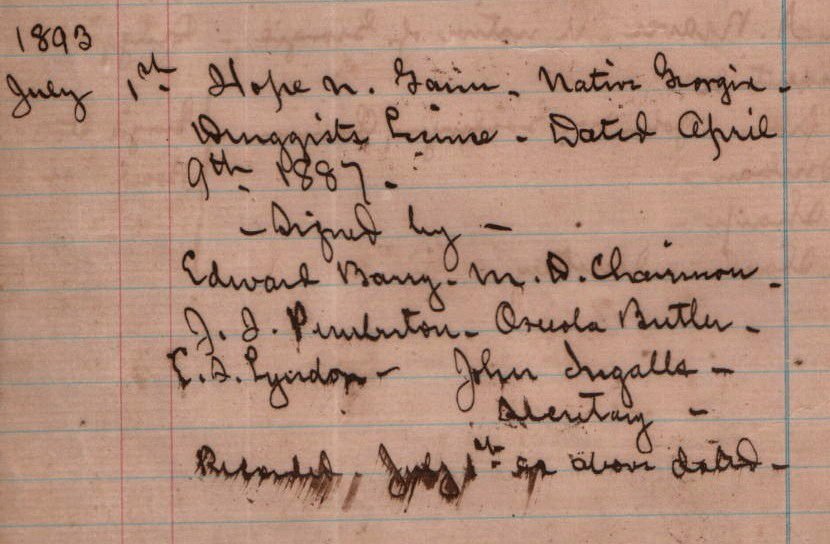 1893
July 1st Hope N. Gain - Native Georgia -
Druggists License - Dated April
9th 1887 -
- Signed by -
Edward Barry - M. D. Chairman -
J. J. Pemberton - Osceola Butler -
E. S. Lyndon - John Ingalls -
Secretary -
Recorded, July 1st as above dated -